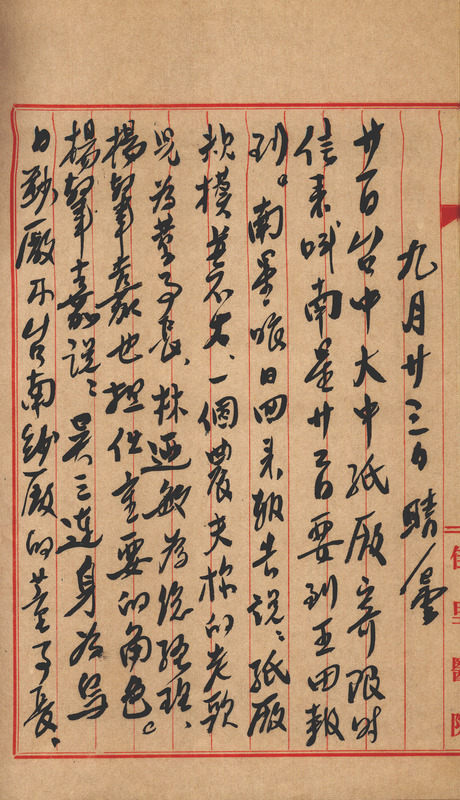 佳里醫院
九月廿三日 晴/曇
廿一日台中大中紙廠寄限時
信来喊南星廿二日要到王田報
到。南星昨日回来報告說：紙廠
規模甚不大、一個農夫樣的老頭
兒為董事長、林迺敏為總經理、
楊肇嘉也担任重要的角色。
楊肇嘉說：吳三連身為烏
日紗廠 台南紗廠的董事長、